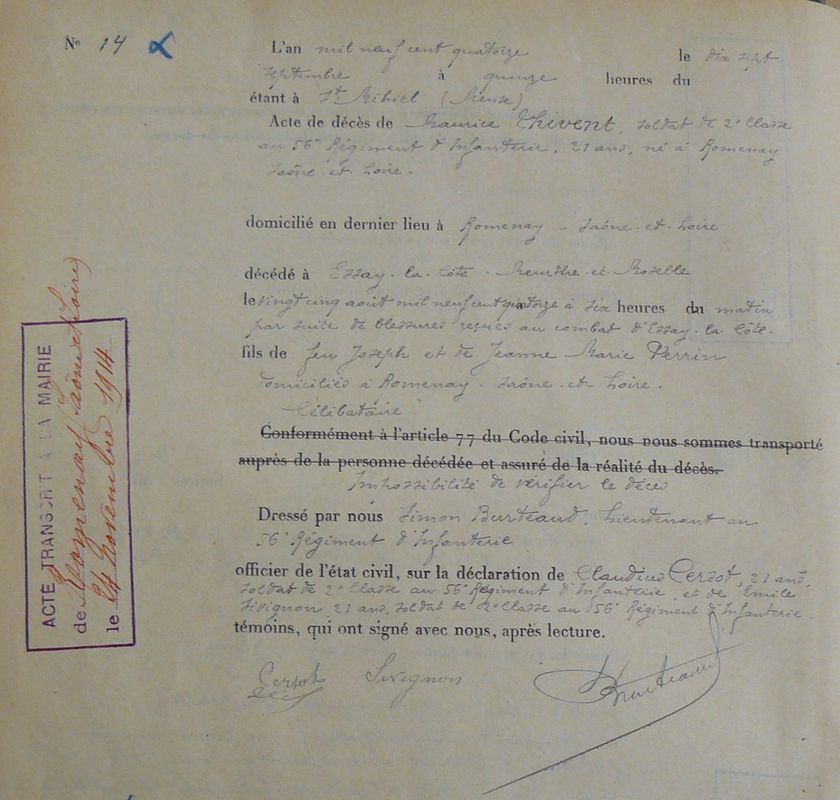 N° 14
L'an mil neuf cent quatorze le dix sept
septembre à quinze heures du
étant à St Mihiel (Meuse)
Acte de décès de Maurice Thivent, soldat de 2e Classe
au 56e Régiment d'Infanterie, 21 ans, né à Romenay
Saône-et-Loire.
domicilié en dernier lieu à Romenay - Saône-et-Loire
décédé à Essay-la-Côte - Meurthe-et-Moselle
le vingt cinq août mil neuf cent quatorze à six heures du matin
par suite de blessures reçues au combat d'Essay-la-Côte.
fils de feu Joseph et de Jeanne Marie Perrin
domiciliés à Romenay - Saône-et-Loire.
Célibataire
Conformément à l'article 77 du Code civil, nous nous sommes transporté
auprès de la personne décédée et assuré de la réalité du décès.
Impossibilité de vérifier le décès
Dressé par nous Simon Burteaud, Lieutenant au
56e Régiment d'Infanterie
officier de l'état civil, sur la déclaration de Claudius Cersot, 21 ans,
soldat de 2e Classe au 56e Régiment d'Infanterie, et de Emile
Sivignon 21 ans, soldat de 2e Classe au 56e Régiment d'Infanterie.
témoins, qui ont signé avec nous, après lecture.
Cersot Sivignon Burteaud
ACTE TRANSCRIT A LA MAIRIE
de Romenay (Saône et Loire)
le 24 Novembre 1914